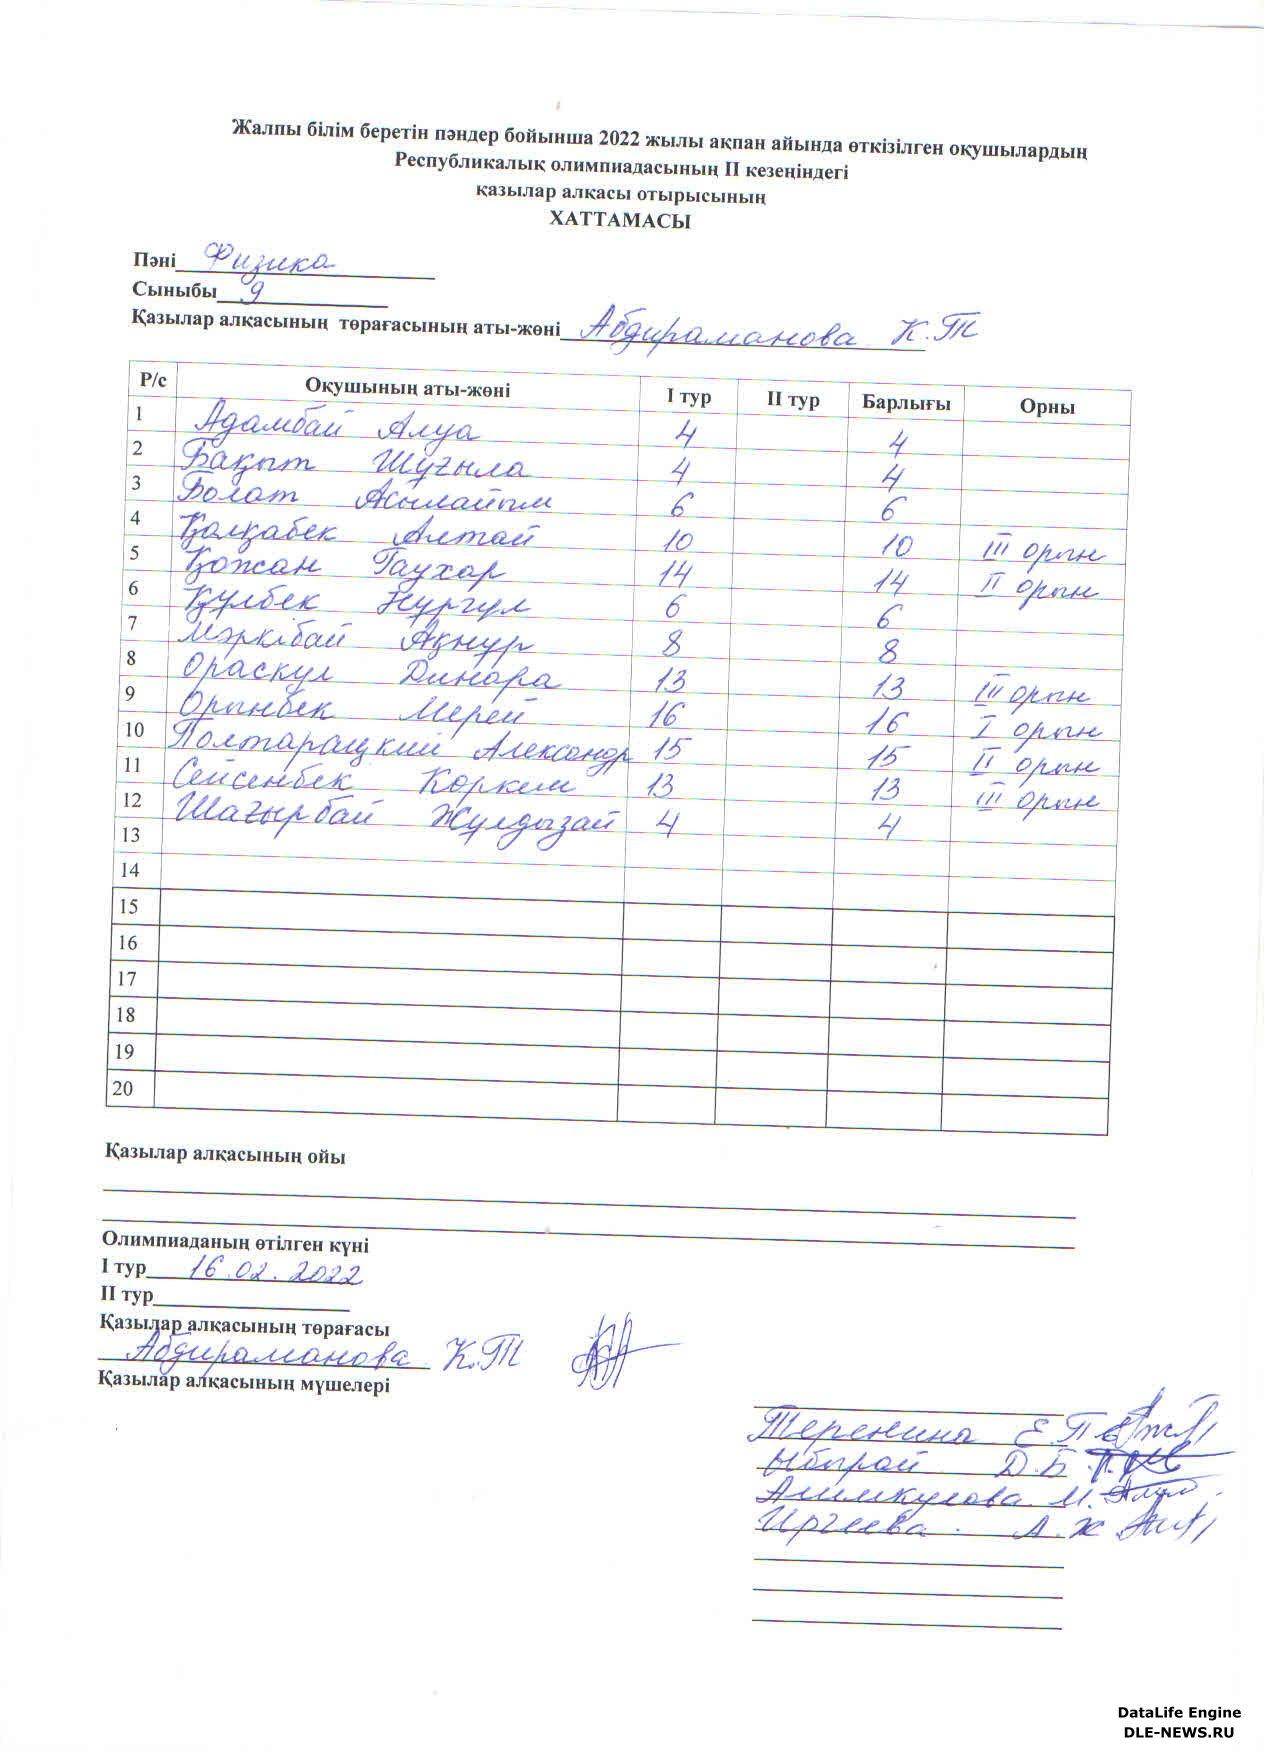 Жалпы білім беретін пәндер бойынша 2022 жылы ақпан айында өткізілген оқушылардың
Республикалық олимпиадасының II кезеңіндегі
қазылар алқасы отырысының
ХАТТАМАСЫ
Пәні Физика
Сыныбы 9
Қазылар алқасының төрағасының аты-жөні Абдираманова К.Т
Р/с Оқушының аты-жөні I тур II тур Барлығы Орны
1 Адамбай Алуа 4 4
2 Бақыт Шұғыла 4 4
3 Болат Асылайым 6 6
4 Қалқабек Алтай 10 10 III орын
5 Қожан Гаухар 14 14 II орын
6 Құлбек Нұргүл 6 6
7 Мәркібай Ақнұр 8 8
8 Ораскул Динара 13 13 III орын
9 Орынбек Мерей 16 16 I орын
10 Полтарацкий Александр 15 15 II орын
11 Сейсенбек Көркем 13 13 III орын
12 Шағырбай Жұлдызай 4 4
13
14
15
16
17
18
19
20
Қазылар алқасының ойы
Олимпиаданың өтілген күні
I тур 16.02.2022
II тур
Қазылар алқасының төрағасы
Абдираманова К.Т
Қазылар алқасының мүшелері
Теренина Е.П
Ыбырай Д.Б
Ашимкулова М.
Иргеева А.Ж
DataLife Engine
DLE-NEWS.RU